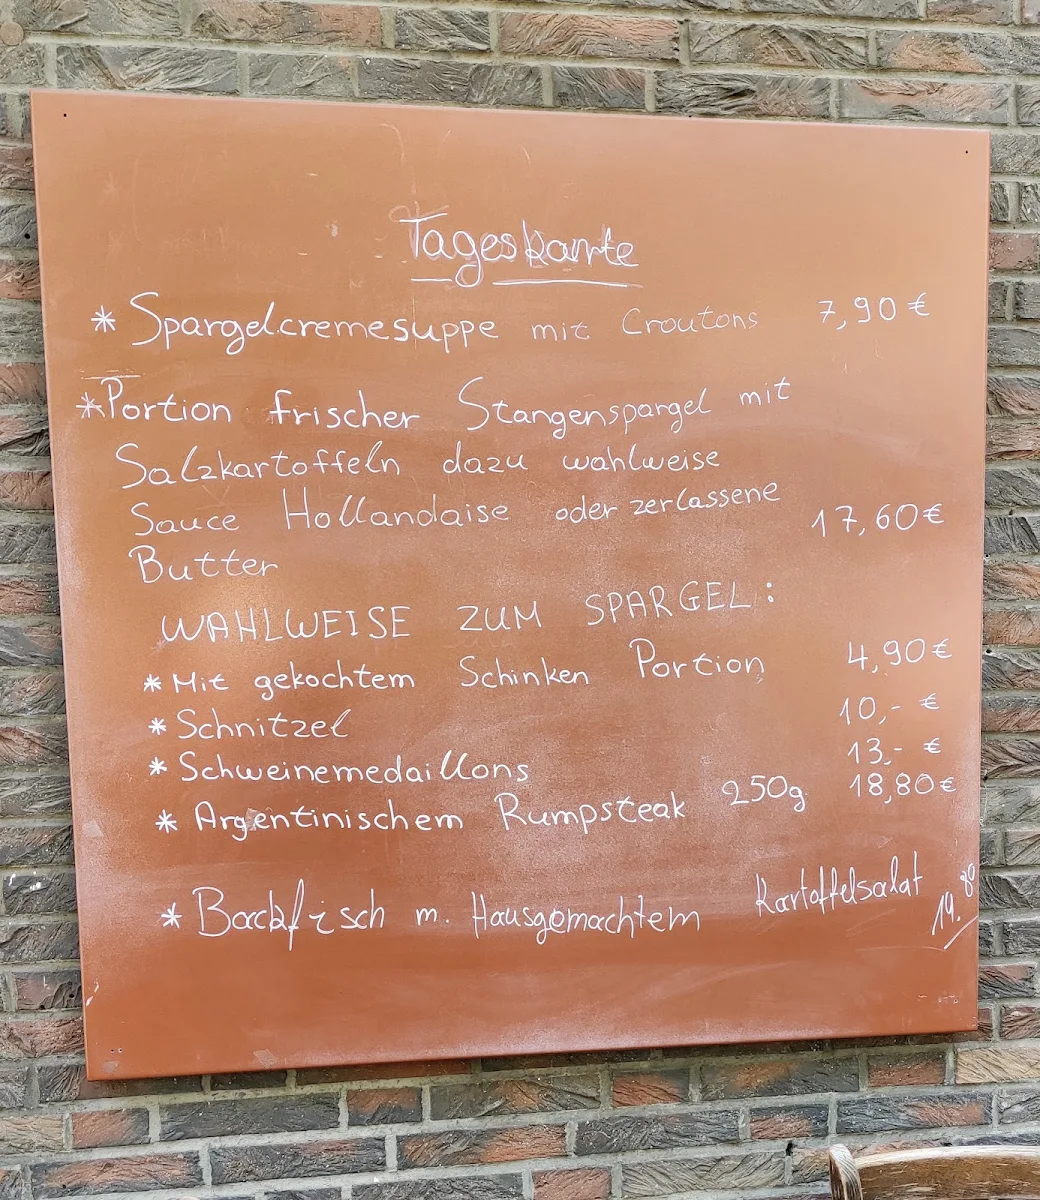 Tageskarte
* Spargelcremesuppe mit Croutons 7,90 €
* Portion frischer Stangenspargel mit
Salzkartoffeln dazu wahlweise
Sauce Hollandaise oder zerlassene
Butter 17,60 €
WAHLWEISE ZUM SPARGEL:
* Mit gekochtem Schinken Portion 4,90 €
* Schnitzel 10,- €
* Schweinemedaillons 13,- €
* Argentinischem Rumpsteak 250g 18,80 €
* Backfisch m. Hausgemachtem Kartoffelsalat 19.80